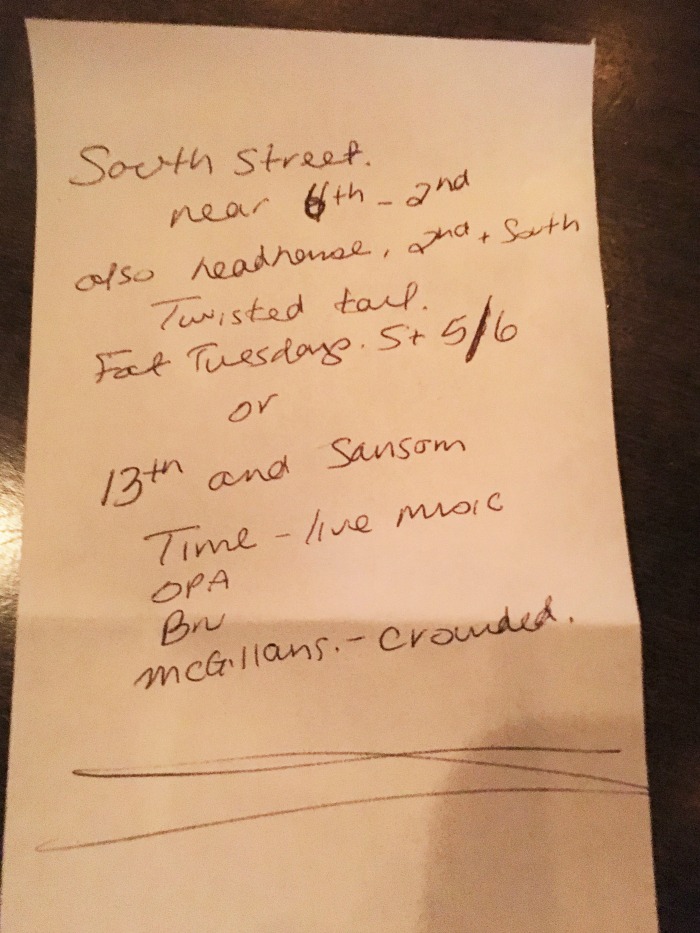 South Street.
near 6th - 2nd
also headhouse, 2nd + South
Twisted tail.
Fat Tuesdays. St 5/6
or
13th and Sansom
Time - live music
OPA
Bru
McGillans. - crowded.